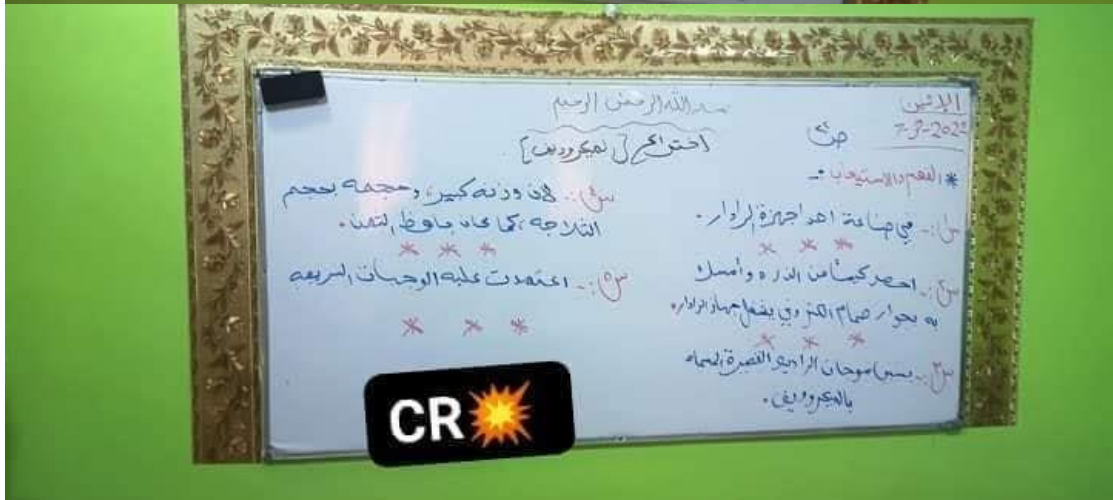 الإثنين
7-3-2022
بسم الله الرحمن الرحيم
اختراع [الميكروويف]
* الفهم والاستيعاب :-
س١:- في صناعة احد اجهزة الرادار.
* * *
س٢:- احضر كيسًا من الذره وأمسك
به بجوار صمام الكتروني يشغل جهاز الرادار.
* * *
س٣:- بسبب موجات الراديو القصيرة المسماه
بالميكروويف.
س٤:- لان وزنه كبير، وحجمه بحجم
الثلاجه، كما كان باهظ الثمن.
* * *
س٥:- اعتمدت عليه الوجبات السريعه
* * *
CR💥